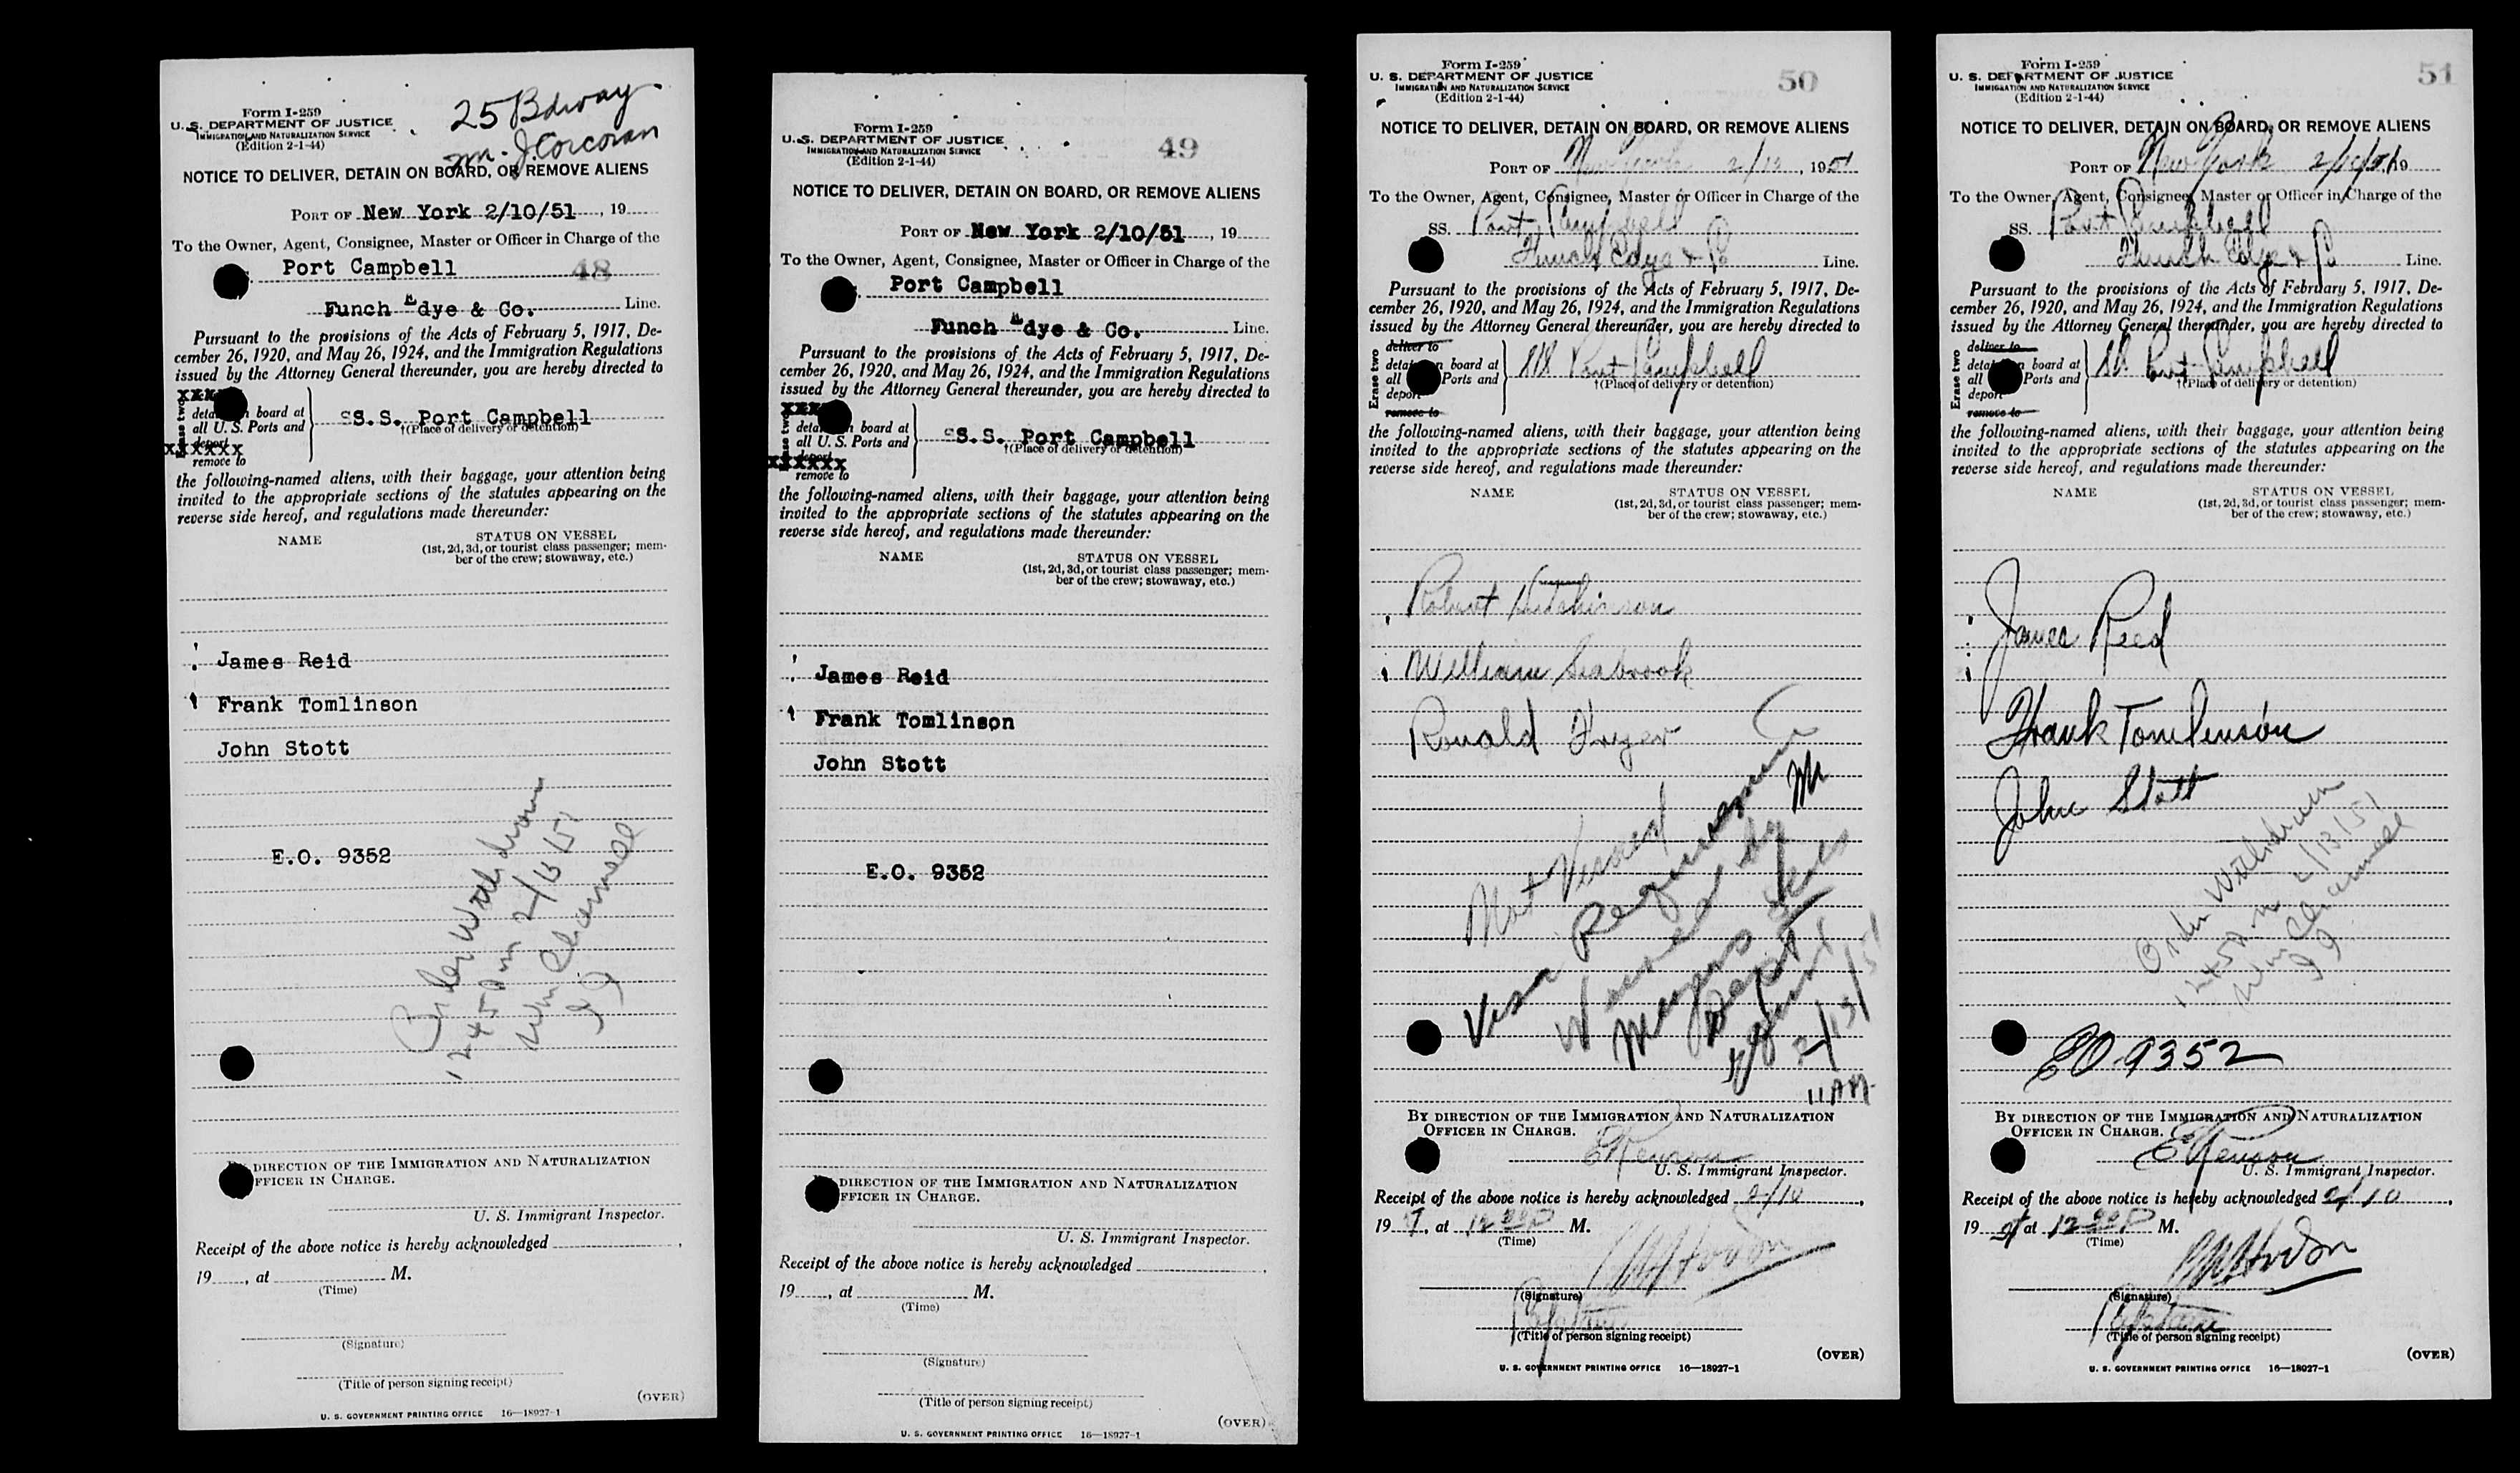 Form I-259
U. S. DEPARTMENT OF JUSTICE
IMMIGRATION AND NATURALIZATION SERVICE
(Edition 2-1-44)
25 Bdway
Mr. J. Corcoran
NOTICE TO DELIVER, DETAIN ON BOARD, OR REMOVE ALIENS
PORT OF New York 2/10/51, 19
To the Owner, Agent, Consignee, Master or Officer in Charge of the
Port Campbell 48
Funch Edye & Co. Line.
Pursuant to the provisions of the Acts of February 5, 1917, De-
cember 26, 1920, and May 26, 1924, and the Immigration Regulations
issued by the Attorney General thereunder, you are hereby directed to
XXX
detain on board at
all U. S. Ports and
deport
XXXXXX
remove to
S.S. Port Campbell
†(Place of delivery or detention)
the following-named aliens, with their baggage, your attention being
invited to the appropriate sections of the statutes appearing on the
reverse side hereof, and regulations made thereunder:
NAME
STATUS ON VESSEL
(1st, 2d, 3d, or tourist class passenger; mem-
ber of the crew; stowaway, etc.)
James Reid
Frank Tomlinson
John Stott
E.O. 9352
Order Withdrawn
1245 P m 2/13/51
BY DIRECTION OF THE IMMIGRATION AND NATURALIZATION
OFFICER IN CHARGE.
U. S. Immigrant Inspector.
Receipt of the above notice is hereby acknowledged
19, at M.
(Time)
(Signature)
(Title of person signing receipt)
(OVER)
U. S. GOVERNMENT PRINTING OFFICE 16—18927-1
Form I-259
U. S. DEPARTMENT OF JUSTICE
IMMIGRATION AND NATURALIZATION SERVICE
(Edition 2-1-44)
49
NOTICE TO DELIVER, DETAIN ON BOARD, OR REMOVE ALIENS
PORT OF New York 2/10/51, 19
To the Owner, Agent, Consignee, Master or Officer in Charge of the
Port Campbell
Funch Edye & Co. Line.
Pursuant to the provisions of the Acts of February 5, 1917, De-
cember 26, 1920, and May 26, 1924, and the Immigration Regulations
issued by the Attorney General thereunder, you are hereby directed to
XXX
detain on board at
all U. S. Ports and
deport
XXXXXX
remove to
S.S. Port Campbell
†(Place of delivery or detention)
the following-named aliens, with their baggage, your attention being
invited to the appropriate sections of the statutes appearing on the
reverse side hereof, and regulations made thereunder:
NAME
STATUS ON VESSEL
(1st, 2d, 3d, or tourist class passenger; mem-
ber of the crew; stowaway, etc.)
James Reid
Frank Tomlinson
John Stott
E.O. 9352
BY DIRECTION OF THE IMMIGRATION AND NATURALIZATION
OFFICER IN CHARGE.
U. S. Immigrant Inspector.
Receipt of the above notice is hereby acknowledged
19, at M.
(Time)
(Signature)
(Title of person signing receipt)
(OVER)
U. S. GOVERNMENT PRINTING OFFICE 16—18927-1
Form I-259
U. S. DEPARTMENT OF JUSTICE
IMMIGRATION AND NATURALIZATION SERVICE
(Edition 2-1-44)
50
NOTICE TO DELIVER, DETAIN ON BOARD, OR REMOVE ALIENS
PORT OF New York 2/10, 1951
To the Owner, Agent, Consignee, Master or Officer in Charge of the
SS. Port Campbell
Funch Edye & Co Line.
Pursuant to the provisions of the Acts of February 5, 1917, De-
cember 26, 1920, and May 26, 1924, and the Immigration Regulations
issued by the Attorney General thereunder, you are hereby directed to
Erase two
deliver to
detain on board at
all U. S. Ports and
deport
remove to
Port Campbell
†(Place of delivery or detention)
the following-named aliens, with their baggage, your attention being
invited to the appropriate sections of the statutes appearing on the
reverse side hereof, and regulations made thereunder:
NAME
STATUS ON VESSEL
(1st, 2d, 3d, or tourist class passenger; mem-
ber of the crew; stowaway, etc.)
Robert Hutchinson
William Seabrook
Ronald Fryer
Not Visaed
Visa Requirement
Waived by
2/13/51
11 AM
BY DIRECTION OF THE IMMIGRATION AND NATURALIZATION
OFFICER IN CHARGE.
U. S. Immigrant Inspector.
Receipt of the above notice is hereby acknowledged 2/10,
19, at 12 00 P M.
(Time)
(Signature)
Captain
(Title of person signing receipt)
(OVER)
U. S. GOVERNMENT PRINTING OFFICE 16—18927-1
Form I-259
U. S. DEPARTMENT OF JUSTICE
IMMIGRATION AND NATURALIZATION SERVICE
(Edition 2-1-44)
51
NOTICE TO DELIVER, DETAIN ON BOARD, OR REMOVE ALIENS
PORT OF New York 2/10/51 19
To the Owner, Agent, Consignee, Master or Officer in Charge of the
SS. Port Campbell
Funch Edye & Co Line.
Pursuant to the provisions of the Acts of February 5, 1917, De-
cember 26, 1920, and May 26, 1924, and the Immigration Regulations
issued by the Attorney General thereunder, you are hereby directed to
Erase two
deliver to
detain on board at
all U. S. Ports and
deport
remove to
SS. Port Campbell
†(Place of delivery or detention)
the following-named aliens, with their baggage, your attention being
invited to the appropriate sections of the statutes appearing on the
reverse side hereof, and regulations made thereunder:
NAME
STATUS ON VESSEL
(1st, 2d, 3d, or tourist class passenger; mem-
ber of the crew; stowaway, etc.)
James Reed
Frank Tomlinson
John Stott
Order Withdrawn
1245 P m 2/13/51
EO 9352
BY DIRECTION OF THE IMMIGRATION AND NATURALIZATION
OFFICER IN CHARGE.
U. S. Immigrant Inspector.
Receipt of the above notice is hereby acknowledged 2/10,
19, at 12 00 P M.
(Time)
(Signature)
Captain
(Title of person signing receipt)
(OVER)
U. S. GOVERNMENT PRINTING OFFICE 16—18927-1